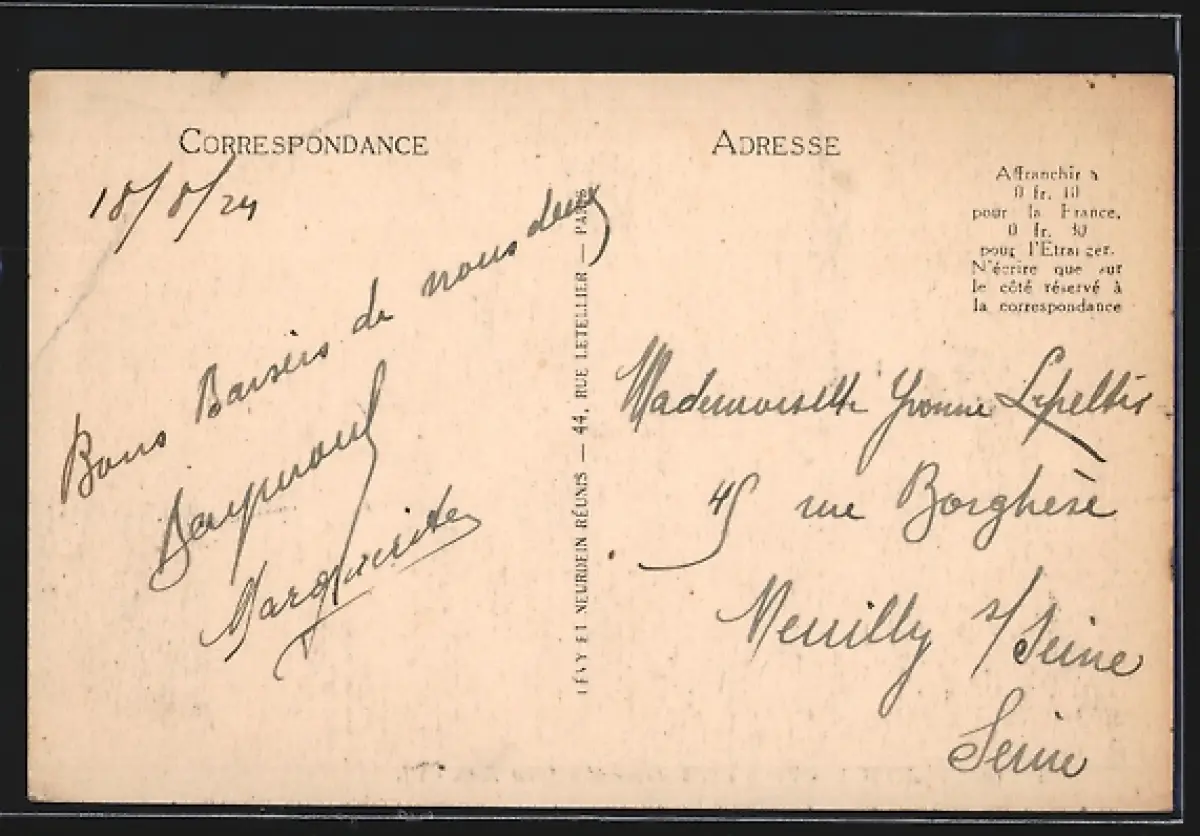 CORRESPONDANCE
18/8/24
Bons Baisers de nous deux
Raymond
Marguerite
LÉVY ET NEURDEIN RÉUNIS — 44, RUE LETELLIER — PARIS
ADRESSE
Affranchir à
0 fr. 10
pour la France,
0 fr. 30
pour l'Etranger.
N'écrire que sur
le côté réservé à
la correspondance
Mademoiselle Yvonne
rue Borghèse
Neuilly s/ Seine
Seine